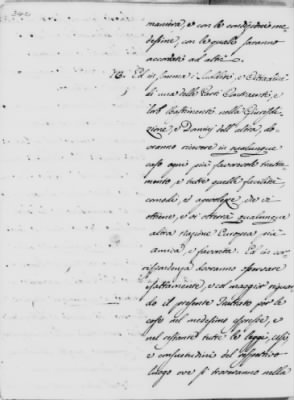 maniera, e con le condizioni me-
desime, con le quali saranno
accordati ad altri.
Ed in somma i Sudditi, e Cittadini
di una delle Parti Contraenti, e
loro bastimenti nella Giurisdi-
zione, e Dominj dell'altra, do-
vranno ricevere in qualunque
caso ogni più favorevole tratta-
mento, e tutte quelle facilità,
comodi, e che si
ottiene, e si otterrà qualunque
altra nazione Europea, più
amica, e favorita. Ed in cor-
rispondenza dovranno osservare
esattamente, e col maggior riguar-
do il presente Trattato per le
cose nel medesimo espresse, e
nel restante tutte le leggi, usi,
e consuetudini del rispettivo
luogo ove si troveranno nella